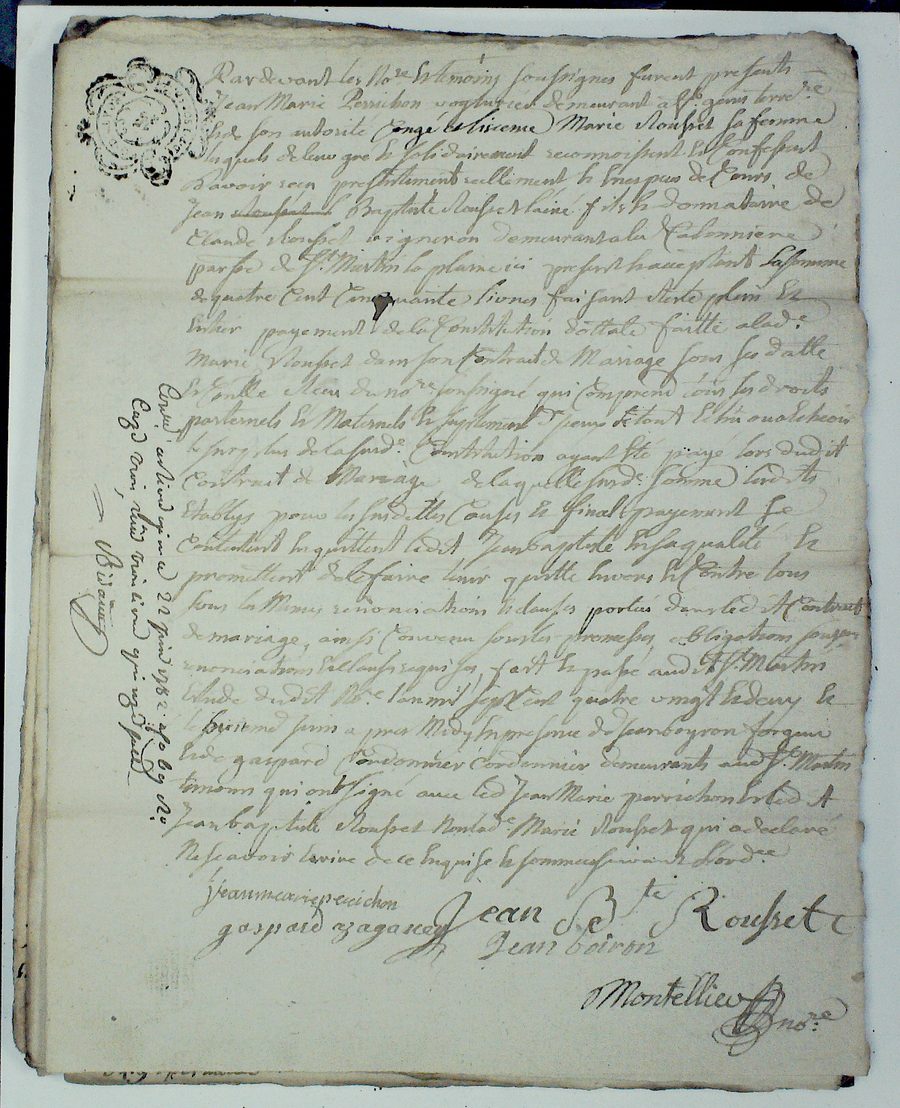 Pardevant les No.re & temoins soussignes furent presents
Jean Marie Perrichon voyturier demeurant a St. genis terre
& de son autorité Congé & license Marie Rousset sa femme
lesquels de leur gré & solidairement reconnoissent & Confessent
D'avoir reçu presentement reellement & en especes de Cours de
Jean Baptiste Rousset laine fils & donnataire de
Claude Rousset vigneron demeurant a la Calonniere
parsse de St. Martin la plaine ici present & acceptant la somme
de quatre Cent Cinquante Livres faisant Reste plein &
Entier payement de la Constitution dottale faitte a lad.e
Marie Rousset dans son Contrat de Mariage sous ses datte
Reçu du no.re soussigné qui Comprend tous les droits
paternels & Maternels & suplement
le surplus de la susd.e Constitution ayant été payé lors dudit
Contrat de Mariage de laquelle susd.e somme lesdits
Etablys pour les susdittes Causes & final payement se
Contentent & quittent ledit Jean baptiste en sa qualité &
promettent de le faire tenir quitte Envers & Contre tous
sous les Mêmes renonciations & clauses portées dans led. Contrat
de mariage, ainsi Convenu sous les promesses, obligations
renonciations & clauses requises, fait & passé audit St Martin
Etude dudit No.re l'an mil sept Cent quatre vingt & deux &
le huit Juin apres Midy En presence de Jean boyron forgeur
& de gaspard Cordonnier demeurants aud. St. Martin
temoins qui ont signé avec led. Jean Marie perrichon & led.
Jean baptiste Rousset Non lad.e Marie Rousset qui a declaré
Ne sçavoir Ecrire de ce Enquise & sommée suivant L'ord.ce
jean marie perichon
gaspard azaganey Jean B.te Rousset
Jean boiron
Montellier no.re
Conté à Rivedegier ce 22 juin 1782
Reçu trois livres quinze sols
Bidaud